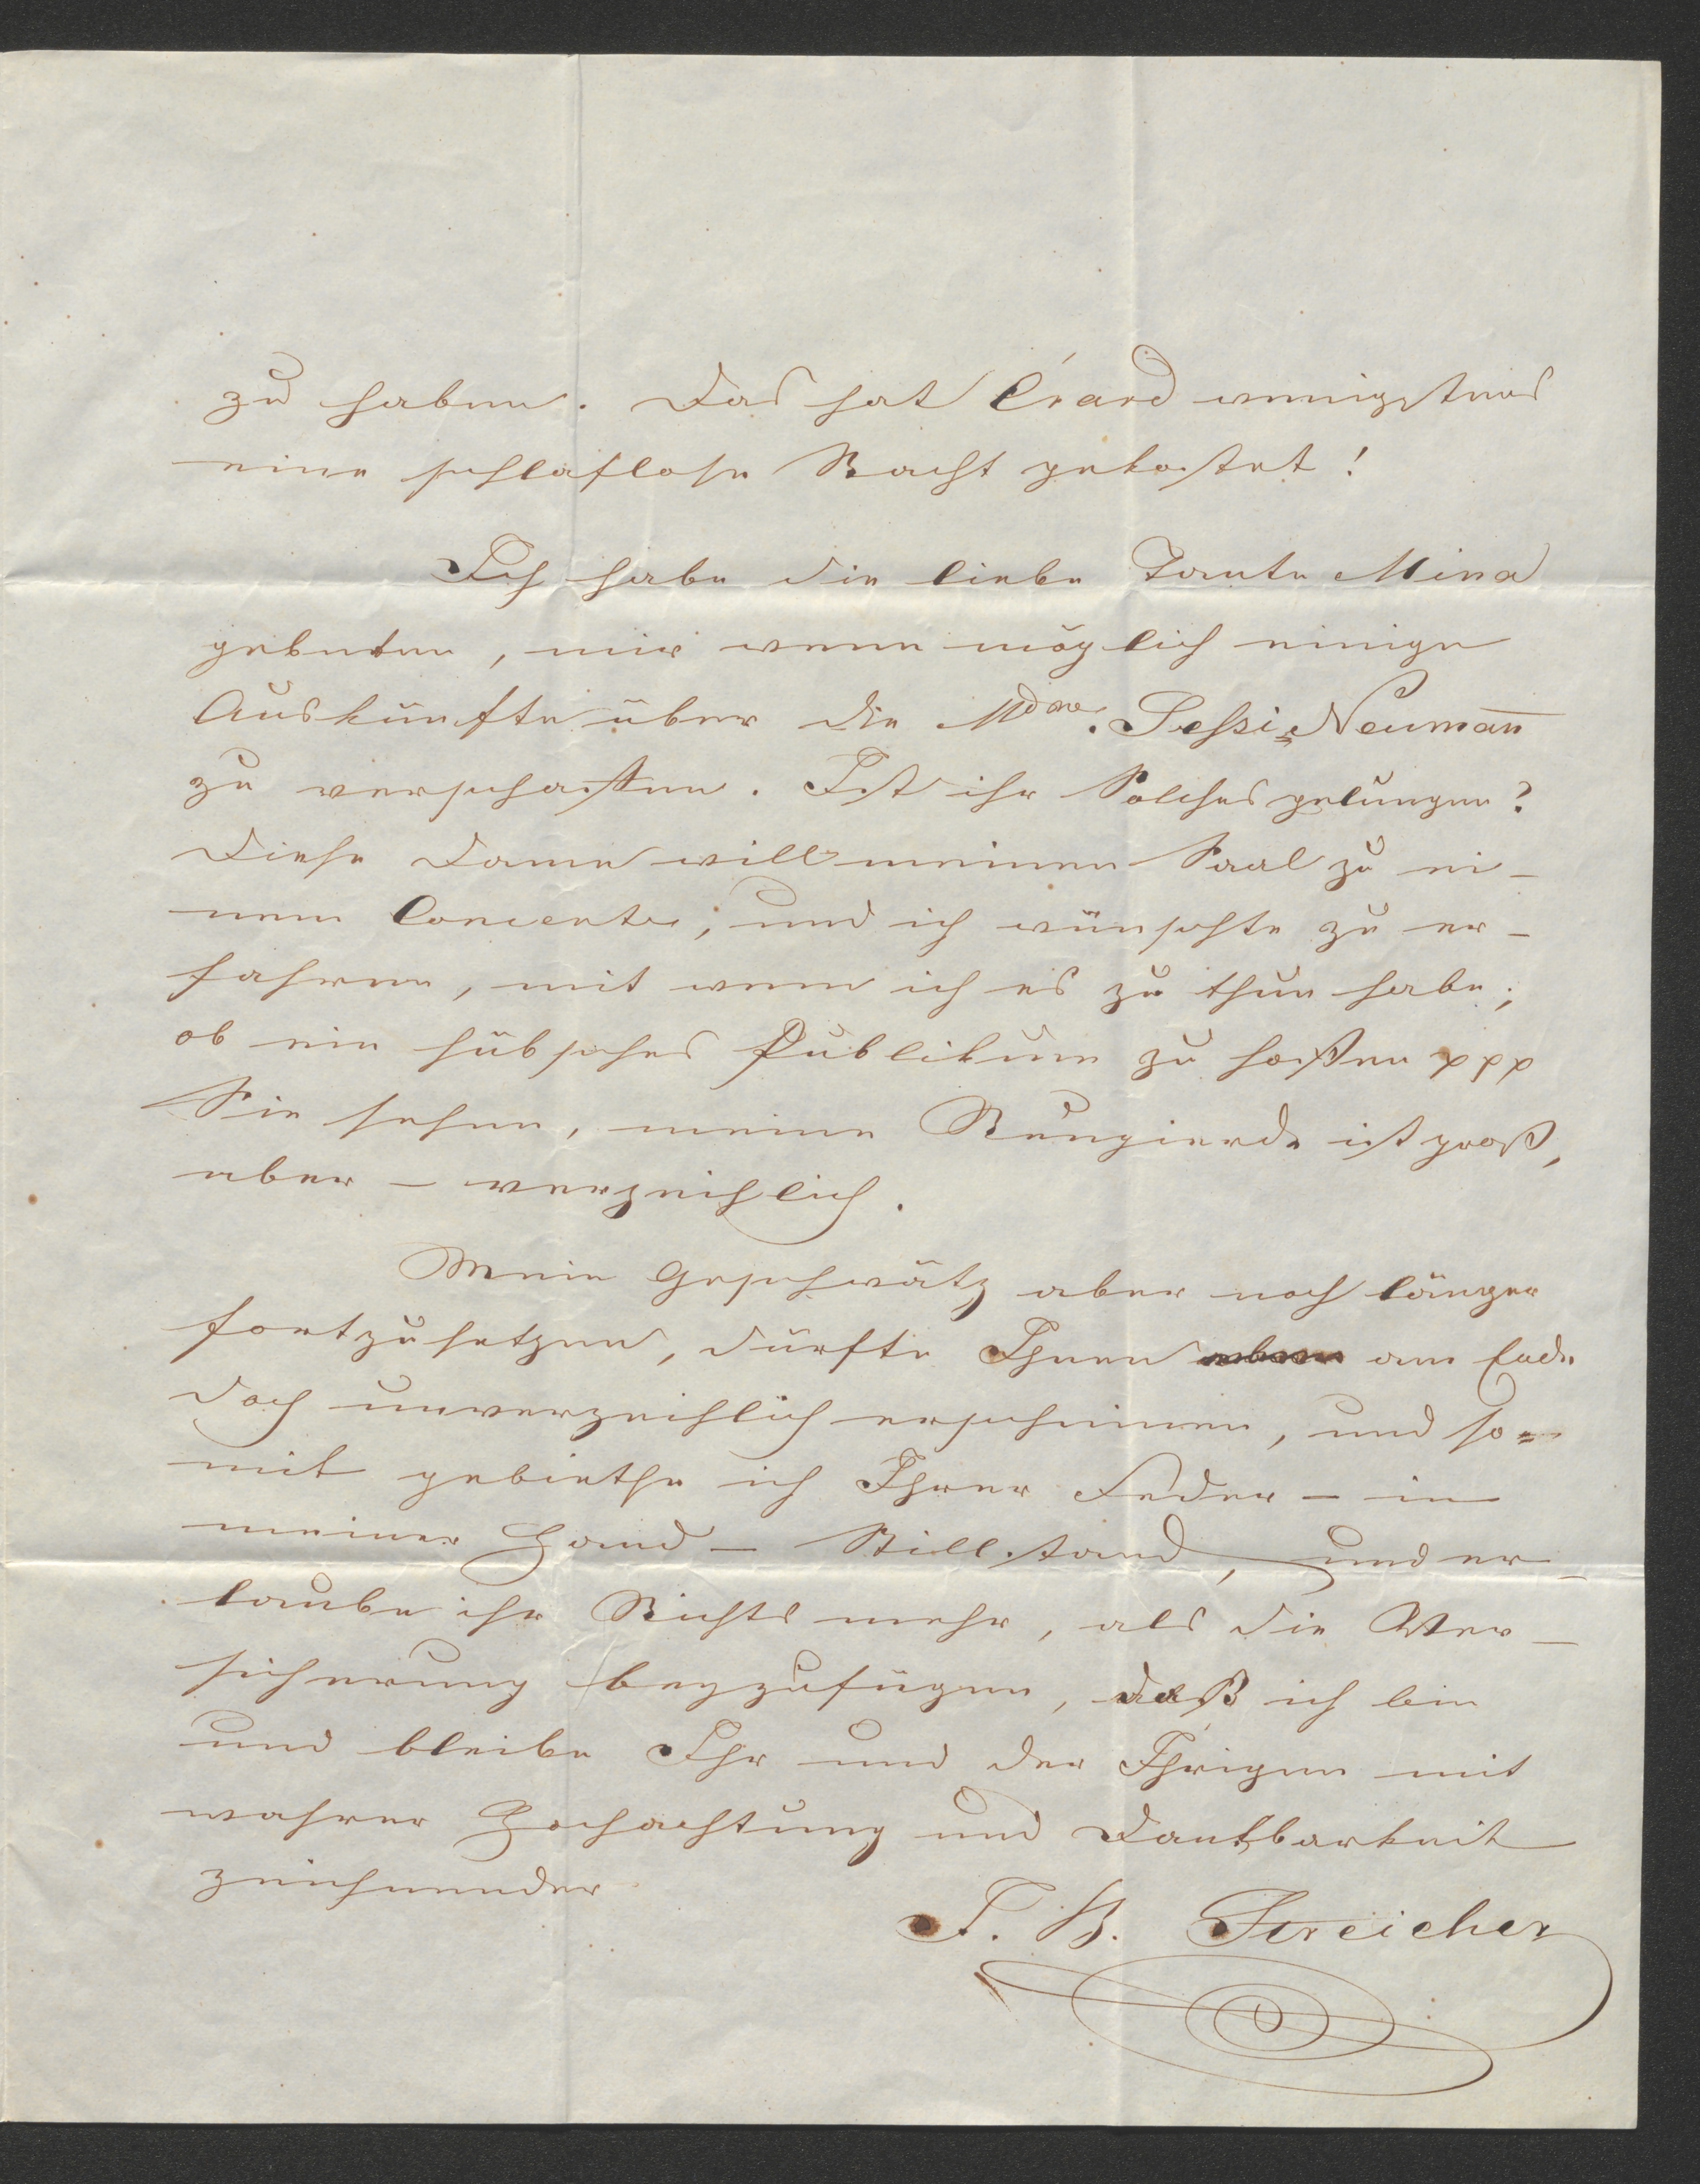 zu haben. Das hat Érard wenigstens
eine schlaflose Nacht gekostet!
Ich habe die liebe Tante Mina
gebeten, mir wenn möglich einige
Auskünfte über die Mdme. Sessi=Neumann̄
zu verschaffen. Ist ihr Solches gelungen?
Diese Dame will meinen Saal zu ei-
nem Concerte, und ich wünschte zu er-
fahren, mit wem ich es zu thun habe;
ob ein hübsches Publikum zu hoffen ppp
Sie sehen, meine Neugierde ist groß,
aber – verzeihlich.
Mein Geschwätz aber noch länger
fortzusetzen, dürfte Ihnen am Ende
doch unverzeihlich erscheinen, und so=
mit gebiethe ich Ihrer Feder – in
meiner Hand – Stillstand, und er-
laube ihr Nichts mehr, als die Ver-
sicherung beyzufügen, daß ich bin
und bleibe Ihr und der Ihrigen mit
wahrer Hochachtung und Dankbarkeit
zeichnender
J. B. Streicher